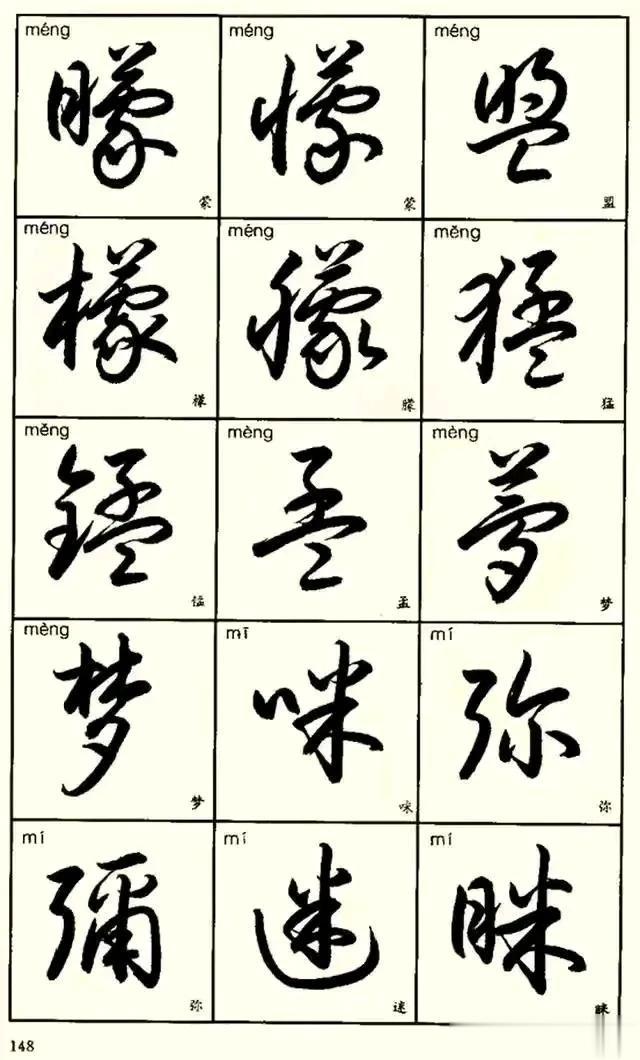 méng méng méng
矇 懞 盟
蒙 蒙 盟
méng méng měng
檬 朦 猛
檬 朦 猛
měng mèng mèng
錳 孟 夢
孟 梦
mèng mī mí
梦 咪 弥
梦 咪 弥
mí mí mí
彌 迷 眯
弥 迷 眯
148